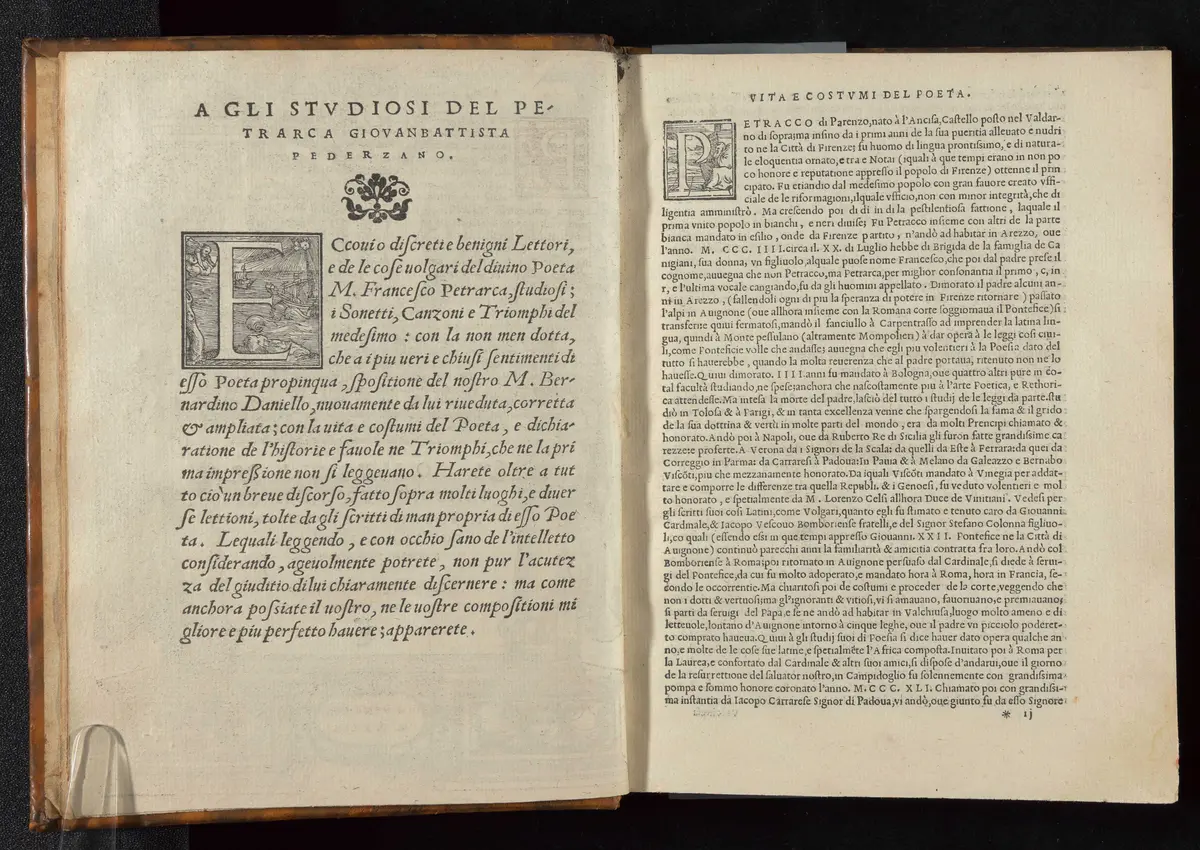 A GLI STVDIOSI DEL PE-
TRARCA GIOVANBATTISTA
PEDERZANO.
ECcoui o discreti e benigni Lettori,
e de le cose uolgari del diuino Poeta
M. Francesco Petrarca, studiosi;
i Sonetti, Canzoni e Triomphi del
medesimo: con la non men dotta,
che a i piu ueri e chiusi sentimenti di
esso Poeta propinqua, spositione del nostro M. Ber-
nardino Daniello, nuouamente da lui riueduta, corretta
& ampliata; con la uita e costumi del Poeta, e dichia-
ratione de l'historie e fauole ne Triomphi, che ne la pri
ma impreßione non si leggeuano. Harete oltre a tut
to cio un breue discorso, fatto sopra molti luoghi, e diuer
se lettioni, tolte da gli scritti di man propria di esso Poe
ta. Lequali leggendo, e con occhio sano de l'intelletto
considerando, ageuolmente potrete, non pur l'acutez
za del giuditio di lui chiaramente discernere: ma come
anchora poßiate il uostro, ne le uostre compositioni mi
gliore e piu perfetto hauere; apparerete.
VITA E COSTVMI DEL POETA.
PETRACCO di Parenzo, nato à l'Ancisa, Castello posto nel Valdar-
no di sopra; ma insino da i primi anni de la sua pueritia alleuato e nudri
to ne la Città di Firenze; fu huomo di lingua prontissimo, e di natura-
le eloquentia ornato, e tra e Notai (iquali à que tempi erano in non po
co honore e reputatione appresso il popolo di Firenze) ottenne il prin
cipato. Fu etiandio dal medesimo popolo con gran fauore creato vffi-
ciale de le riformagioni, ilquale vfficio, non con minor integrità, che di
ligentia amministrò. Ma crescendo poi di dì in dì la pestilentiosa fattione, laquale il
prima vnito popolo in bianchi, e neri diuise; Fu Petracco insieme con altri de la parte
bianca mandato in esilio, onde da Firenze partito, n'andò ad habitar in Arezzo, oue
l'anno. M. CCC. IIII. circa il. XX. di Luglio hebbe di Brigida de la famiglia de Ca
nigiani, sua donna; vn figliuolo, alquale puose nome Francesco, che poi dal padre prese il
cognome, auuegna che non Petracco, ma Petrarca, per miglior consonantia il primo, c, in
r, e l'ultima vocale cangiando, fu da gli huomini appellato. Dimorato il padre alcuni an-
ni in Arezzo, (fallendoli ogni dì piu la speranza di potere in Firenze ritornare) passato
l'alpi in Auignone (oue allhora insieme con la Romana corte soggiornaua il Pontefice) si
transferì e quiui fermatosi, mandò il fanciullo à Carpentrasso ad imprender la latina lin-
gua, quindi à Monte pessulano (altramente Mompolieri) à dar opera à le leggi così ciui-
li, come Ponteficie volle che andasse; auuegna che egli piu volentieri à la Poesia dato del
tutto si hauerebbe, quando la molta reuerenza che al padre portaua, ritenuto non ne lo
hauesse. Quiui dimorato. IIII. anni fu mandato à Bologna, oue quattro altri pure in co-
tal facultà studiando, ne spese; anchora che nascostamente piu à l'arte Poetica, e Rethori-
ca attendesse. Ma intesa la morte del padre, lasciò del tutto i studij de le leggi da parte. Stu
diò in Tolosa & à Parigi, & in tanta excellenza venne che spargendosi la fama & il grido
de la sua dottrina & vertù in molte parti del mondo, era da molti Prencipi chiamato &
honorato. Andò poi à Napoli, oue da Ruberto Re di Sicilia gli furon fatte grandissime ca
rezze e proferte. A Verona da i Signori de la Scala: da quelli da Este à Ferrara: da quei da
Correggio in Parma: da Carraresi à Padoua: In Pauia & à Melano da Galeazzo e Bernabo
Viscõti, piu che mezzanamente honorato. Da iquali Viscõti mandato à Vinegia per addat-
tare e comporre le differenze tra quella Republi. & i Genoesi, fu veduto volentieri e mol
to honorato, e spetialmente da M. Lorenzo Celsi allhora Duce de Vinitiani. Vedesi per
gli scritti suoi così Latini, come Volgari, quanto egli fu stimato e tenuto caro da Giouanni
Cardinale, & Iacopo Vescouo Bomboriense fratelli, e del Signor Stefano Colonna figliuo-
li, co quali (essendo essi in que tempi appresso Giouanni. XXII. Pontefice ne la Città di
Auignone) continuò parecchi anni la familiarità & amicitia contratta fra loro. Andò col
Bomboriense à Roma; poi ritornato in Auignone persuaso dal Cardinale, si diede à serui-
gi del Pontefice, da cui fu molto adoperato, e mandato hora à Roma, hora in Francia, se-
condo le occorrentie. Ma chiaritosi poi de costumi e proceder de la corte, veggendo che
non i dotti & vertuosi ma gl'ignoranti & vitiosi, vi si amauano, fauoriuano, e premiauano;
si partì da seruigi del Papa, e se ne andò ad habitar in Valchiusa, luogo molto ameno e di
letteuole, lontano d'Auignone intorno à cinque leghe, oue il padre vn picciolo poderet-
to comprato haueua. Quiui à gli studij suoi di Poesia si dice hauer dato opera qualche an
no, e molte de le cose sue latine, e spetialmẽte l'Africa composta. Inuitato poi à Roma per
la Laurea, e confortato dal Cardinale & altri suoi amici, si dispose d'andarui, oue il giorno
de la resurrettione del saluator nostro, in Campidoglio fu solennemente con grandissima
pompa e sommo honore coronato l'anno. M. CCC. XLI. Chiamato poi con grandissi-
ma instantia da Iacopo Carrarese Signor di Padoua, vi andò, oue giunto fu da esso Signore
* ij